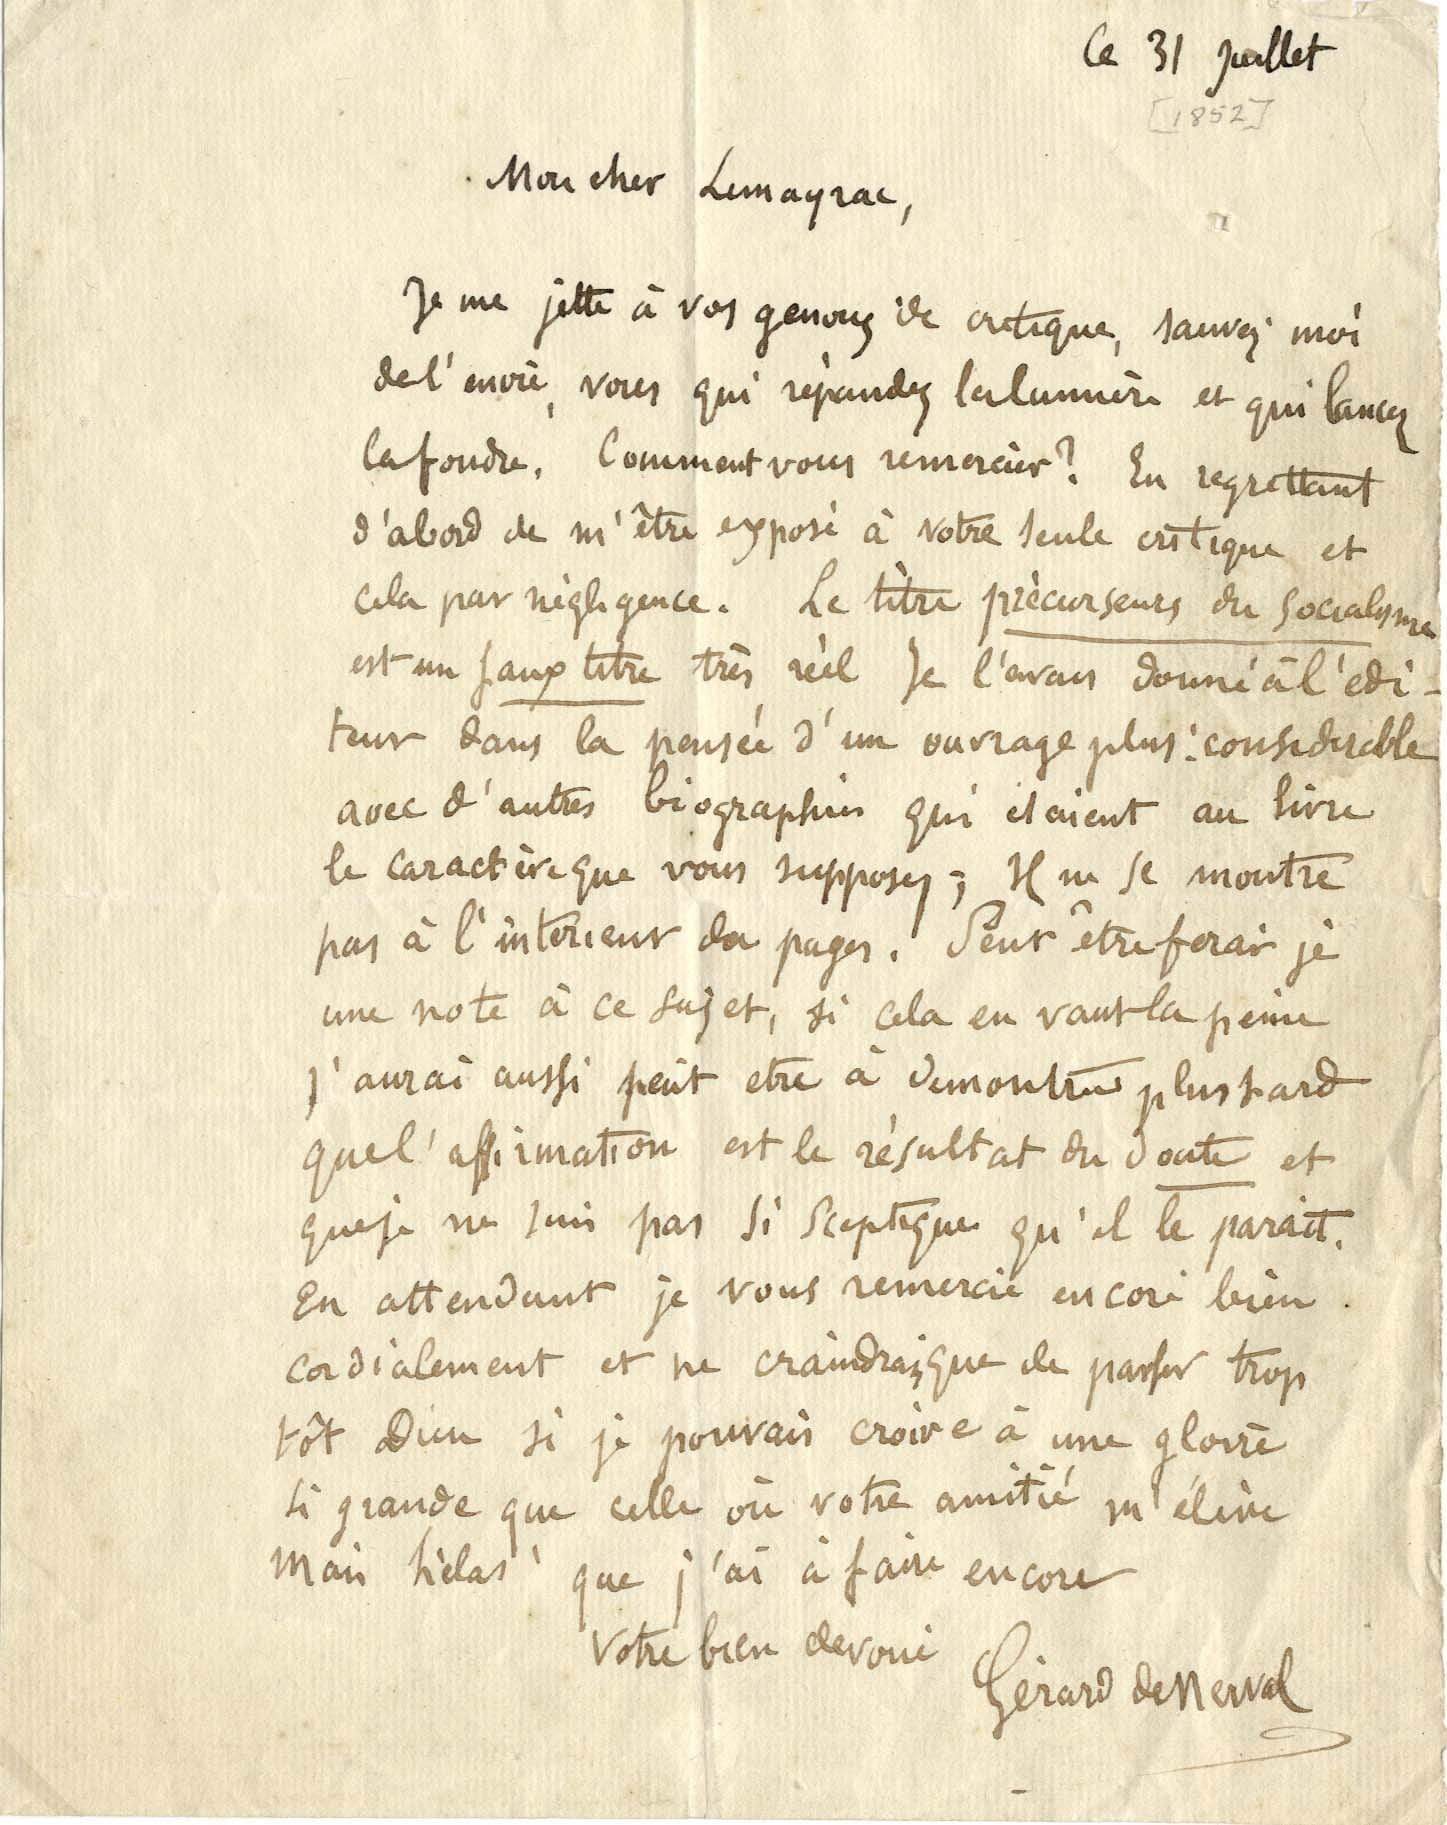 Ce 31 Juillet
[1852]
Mon cher Limayrac,
Je me jette à vos genoux de critique, sauvez moi
de l'envie, vous qui répandez la lumière et qui lancez
la foudre. Comment vous remercier? En regrettant
d'abord de m'être exposé à votre seule critique et
cela par négligence. Le titre précurseurs du socialisme
est un faux titre très réel Je l'avais donné à l'édi-
teur dans la pensée d'un ouvrage plus considérable
avec d'autres biographies qui étaient au livre
le caractère que vous supposez; Il ne se montre
pas à l'intérieur des pages. Peut être ferai je
une note à ce sujet, si cela en vaut la peine
J'aurai aussi peut etre à démontrer plus tard
que l'affirmation est le résultat du doute et
que je ne suis pas si sceptique qu'il le parait.
En attendant je vous remercie encore bien
cordialement et ne craindrais que de passer trop
tôt Dieu si je pouvais croire à une gloire
si grande que celle où votre amitié m'élève
Mais hélas! que j'ai à faire encore
Votre bien dévoué
Gérard de Nerval